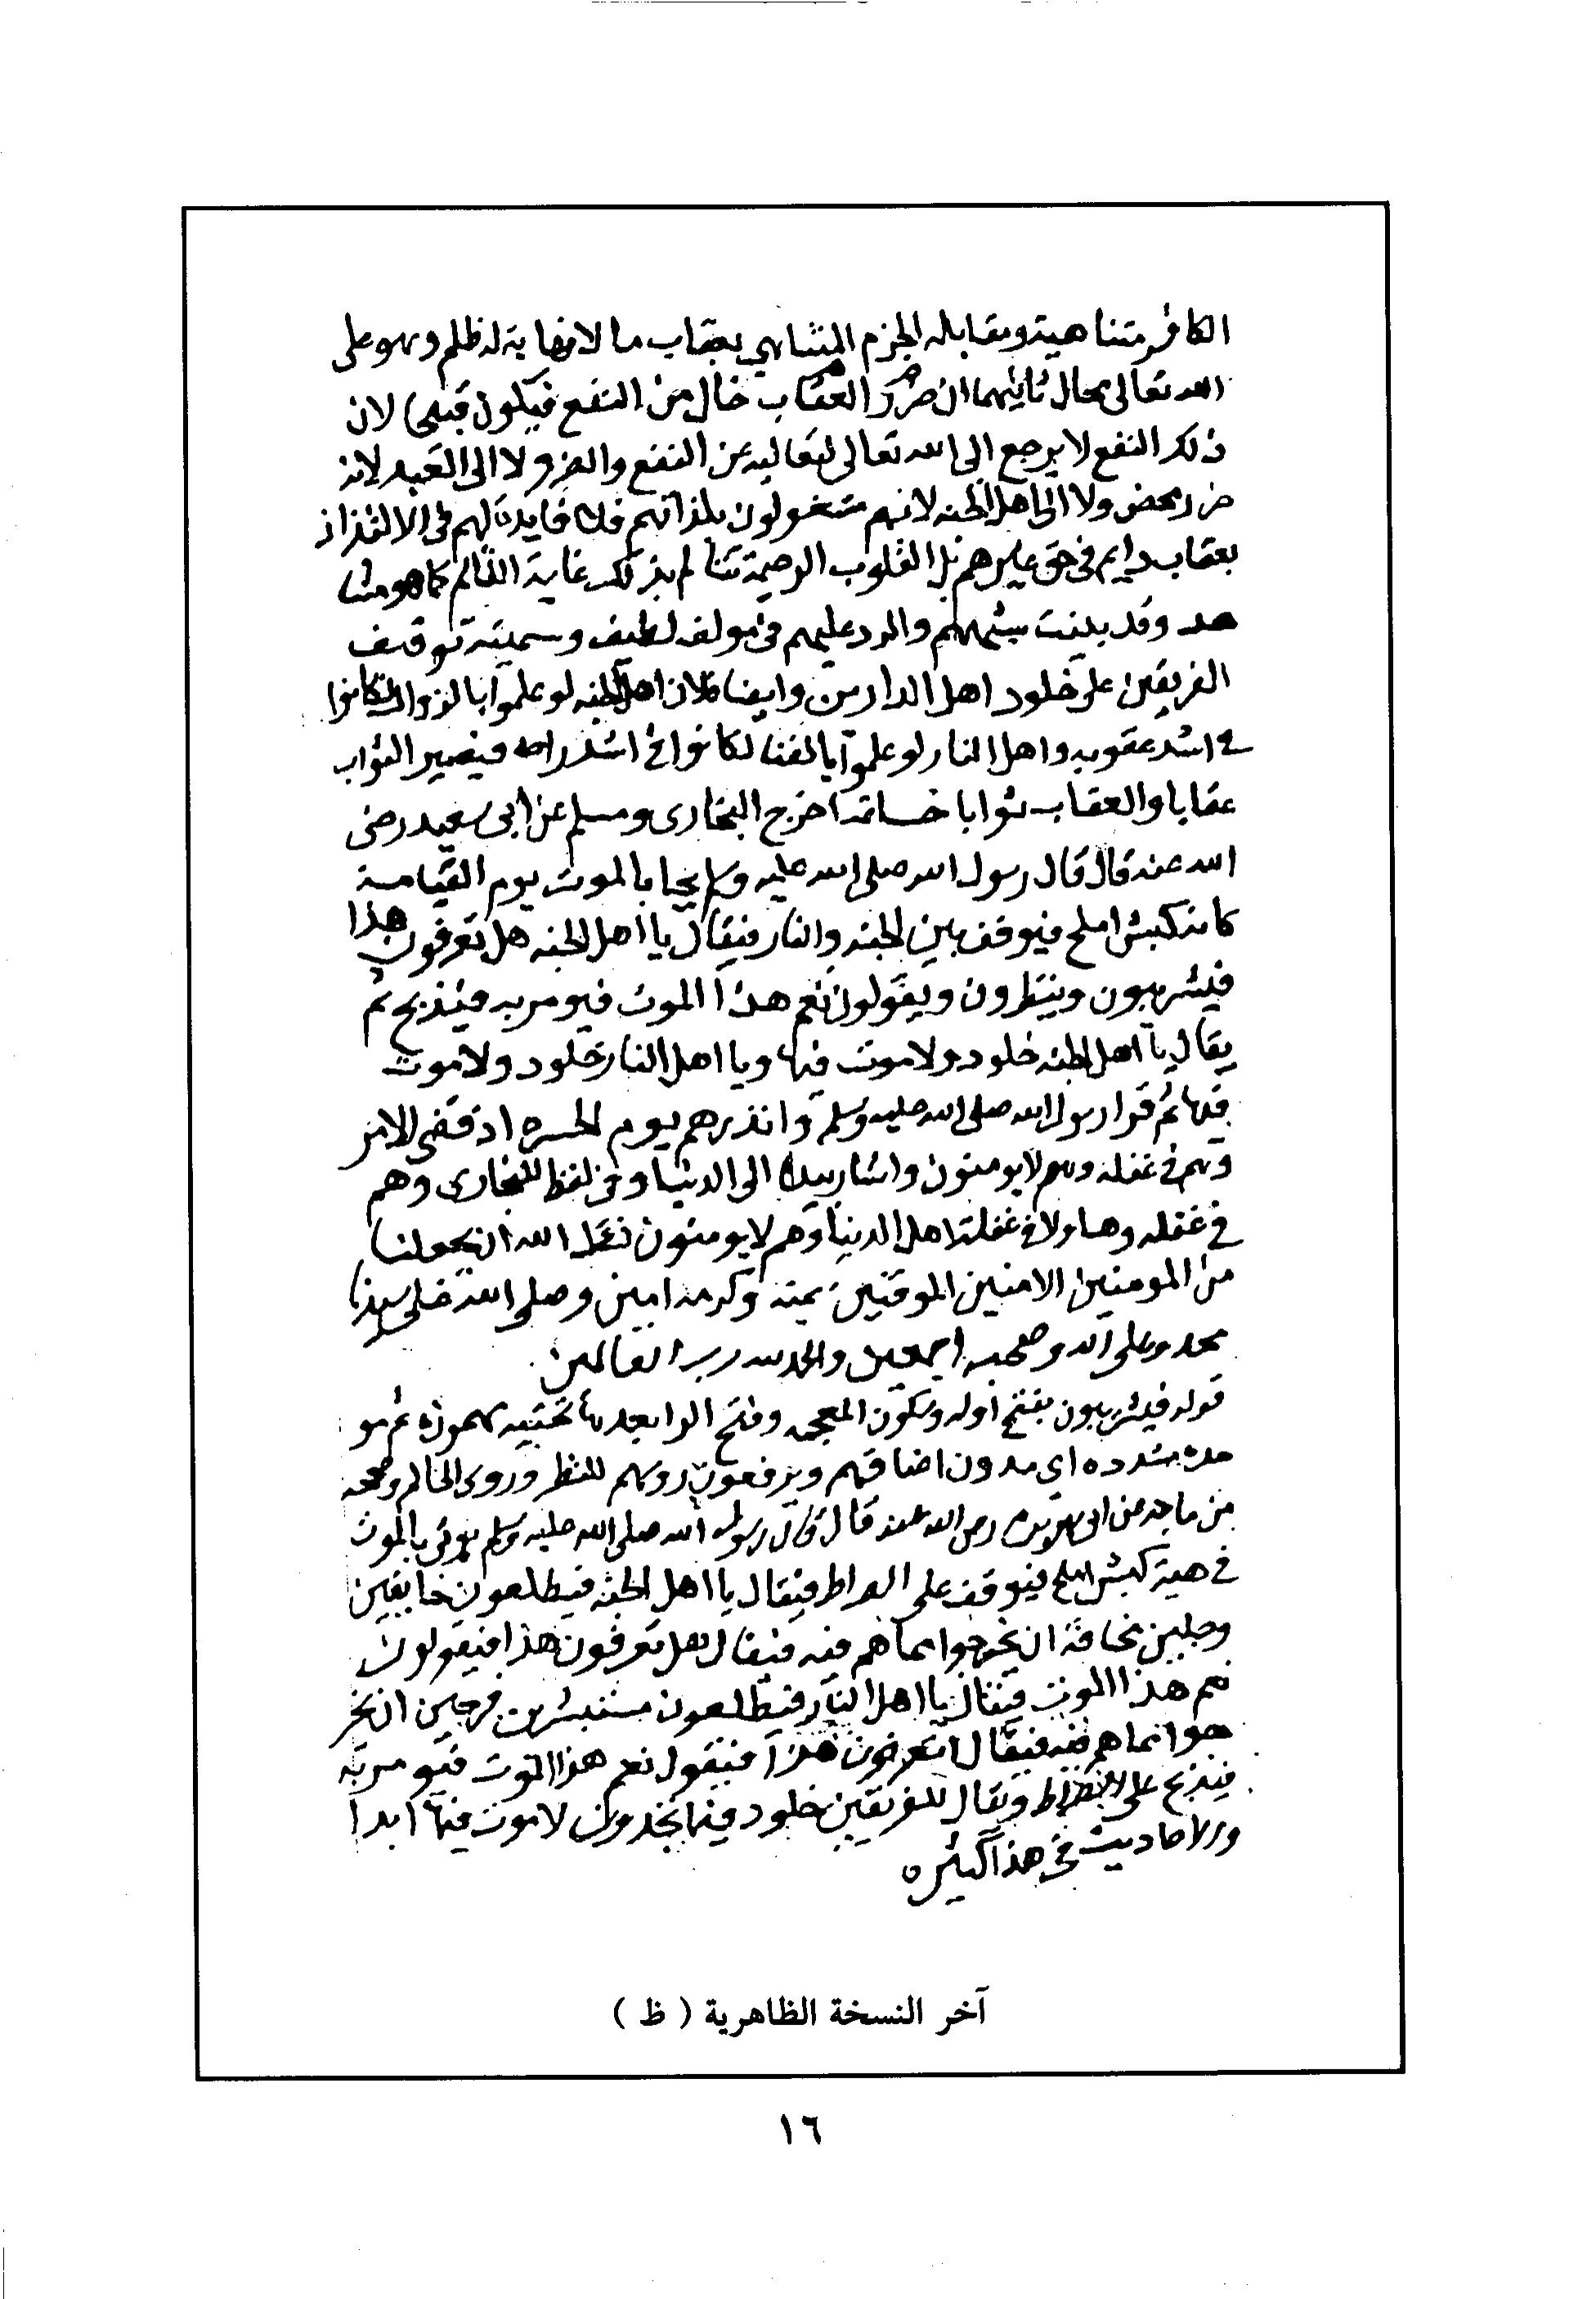 الكافر متناهية ومقابلة الجرم المتناهي بعقاب ما لا نهاية له ظلم وهو على
الله تعالى محال ثانيهما ان ضرر العقاب خال من النفع فيكون قبيحا لان
ذلك النفع لا يرجع الى الله تعالى لتعاليه عن النفع والضر ولا الى العبد لانه
ضرر محض ولا الى اهل الجنه لانهم مشغولون بلذاتهم فلا فايدة لهم في الالتذاذ
بعقاب دايم في حق غيرهم بل القلوب الرحيمة تتالم بذلك غاية التالم كما هو مشا
هد وقد بينت شبههم والرد عليهم في مولف لطيف وسميته توقيف
الفريقين على خلود اهل الدارين وايضا فلان اهل الجنه لو علموا بالزوال لكانوا
في اشد عقوبه واهل النار لو علموا بالفنا لكانوا في اشد راحه فيصير الثواب
عقابا والعقاب ثوابا خاتمة اخرج البخارى ومسلم عن ابى سعيد رضى
الله عنه قال قال رسول الله صلى الله عليه وسلم يجا بالموت يوم القيامة
كانه كبش املح فيوقف بين الجنه والنار فيقال يا اهل الجنه هل تعرفون هذا
فيشريبون وينظرون ويقولون نعم هذا الموت فيومر به فيذبح ثم
يقال يا اهل الجنه خلود ولا موت فيها ويا اهل النار خلود ولا موت
فيها ثم قرا رسول الله صلى الله عليه وسلم وانذرهم يوم الحسره اذ قضى الامر
وهم في غفله وهم لا يومنون واشار بيده الى الدنيا وفي لفظ للبخارى وهم
في غفله وهاولا في غفلة اهل الدنيا وهم لا يومنون نسل الله ان يجعلنا
من المومنين الامنين الموقنين بمنه وكرمه امين وصلى الله على سيدنا
محمد وعلى اله وصحبه اجمعين والحمد لله رب العالمين
قوله فيشريبون بفتح اوله وسكون المعجمه وفتح الرا بعدها تحتيه مهموزه ثم مو
حده مشدده اى يمدون اعناقهم ويرفعون روسهم للنظر وروى الحاكم وصححه
بن ماجه عن ابى هريرة رضى الله عنه قال قال رسول الله صلى الله عليه وسلم يوتى بالموت
في هية كبش املح فيوقف على الصراط فيقال يا اهل الجنه فيطلعون خايفين
وجلين مخافة ان يخرجوا مما هم فيه فيقال هل تعرفون هذا فيقولون
نعم هذا الموت فيقال يا اهل النار فيطلعون مستبشرين فرحين ان يخر
جوا مما هم فيه فيقال اتعرفون هذا فيقول نعم هذا الموت فيومر به
فيذبح على الصراط ويقال للفريقين خلود فيما تجدون لا موت فيها ابدا
والاحاديث في هذا كثيره
آخر النسخة الظاهرية ( ظ )
١٦